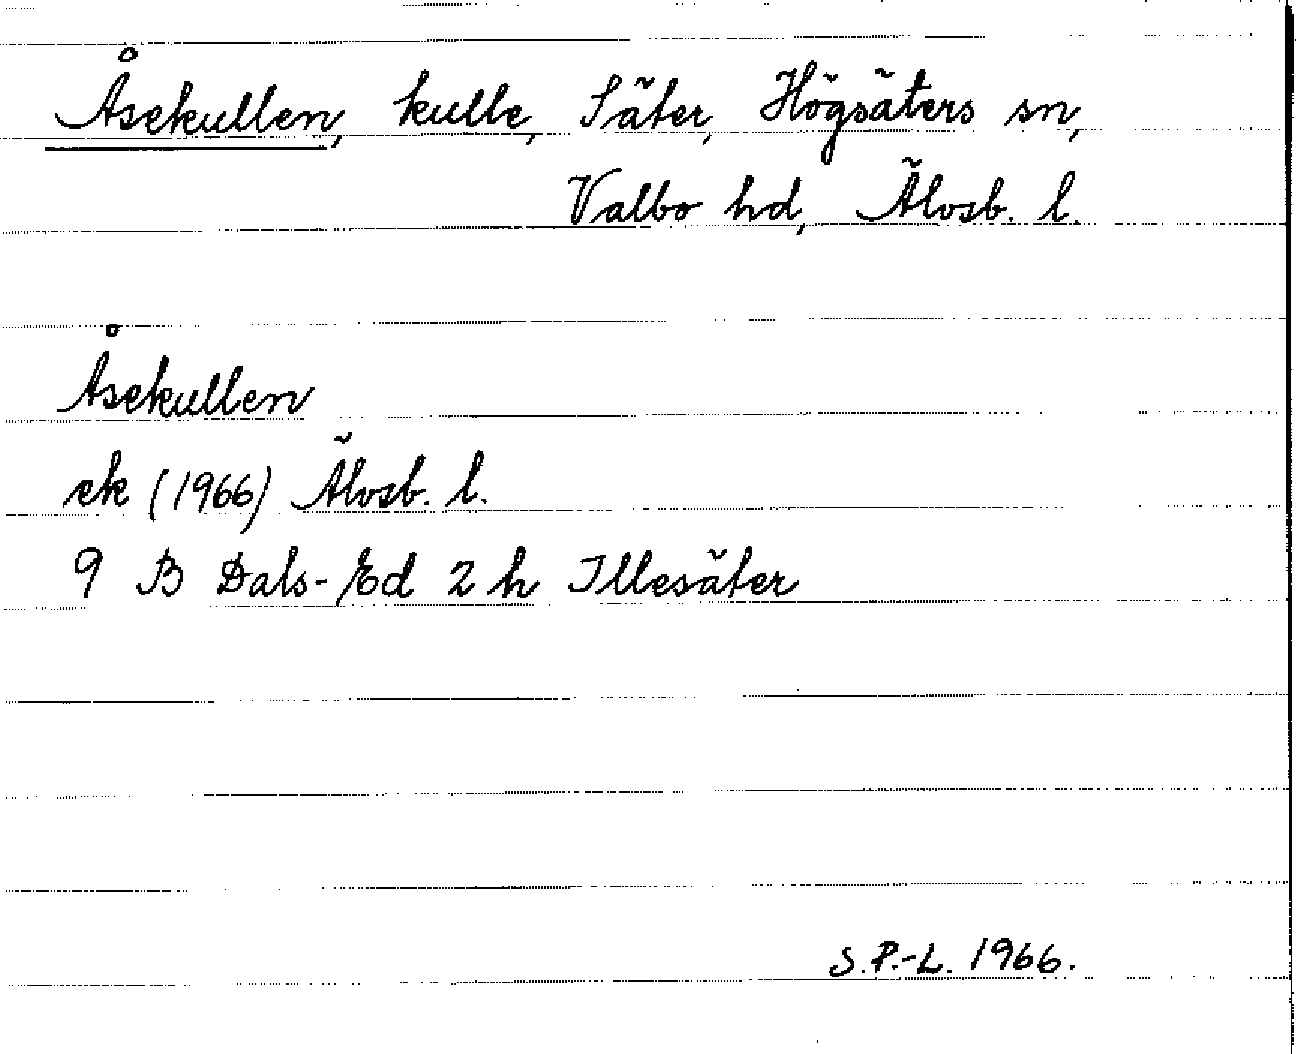 Åsekullen, kulle, Säter, Högsäters sn,
Valbo hd, Älvsb. l.
Åsekullen
ek (1966) Älvsb. l.
9 B Dals-Ed 2 h Illesäter
S.P.-L. 1966.